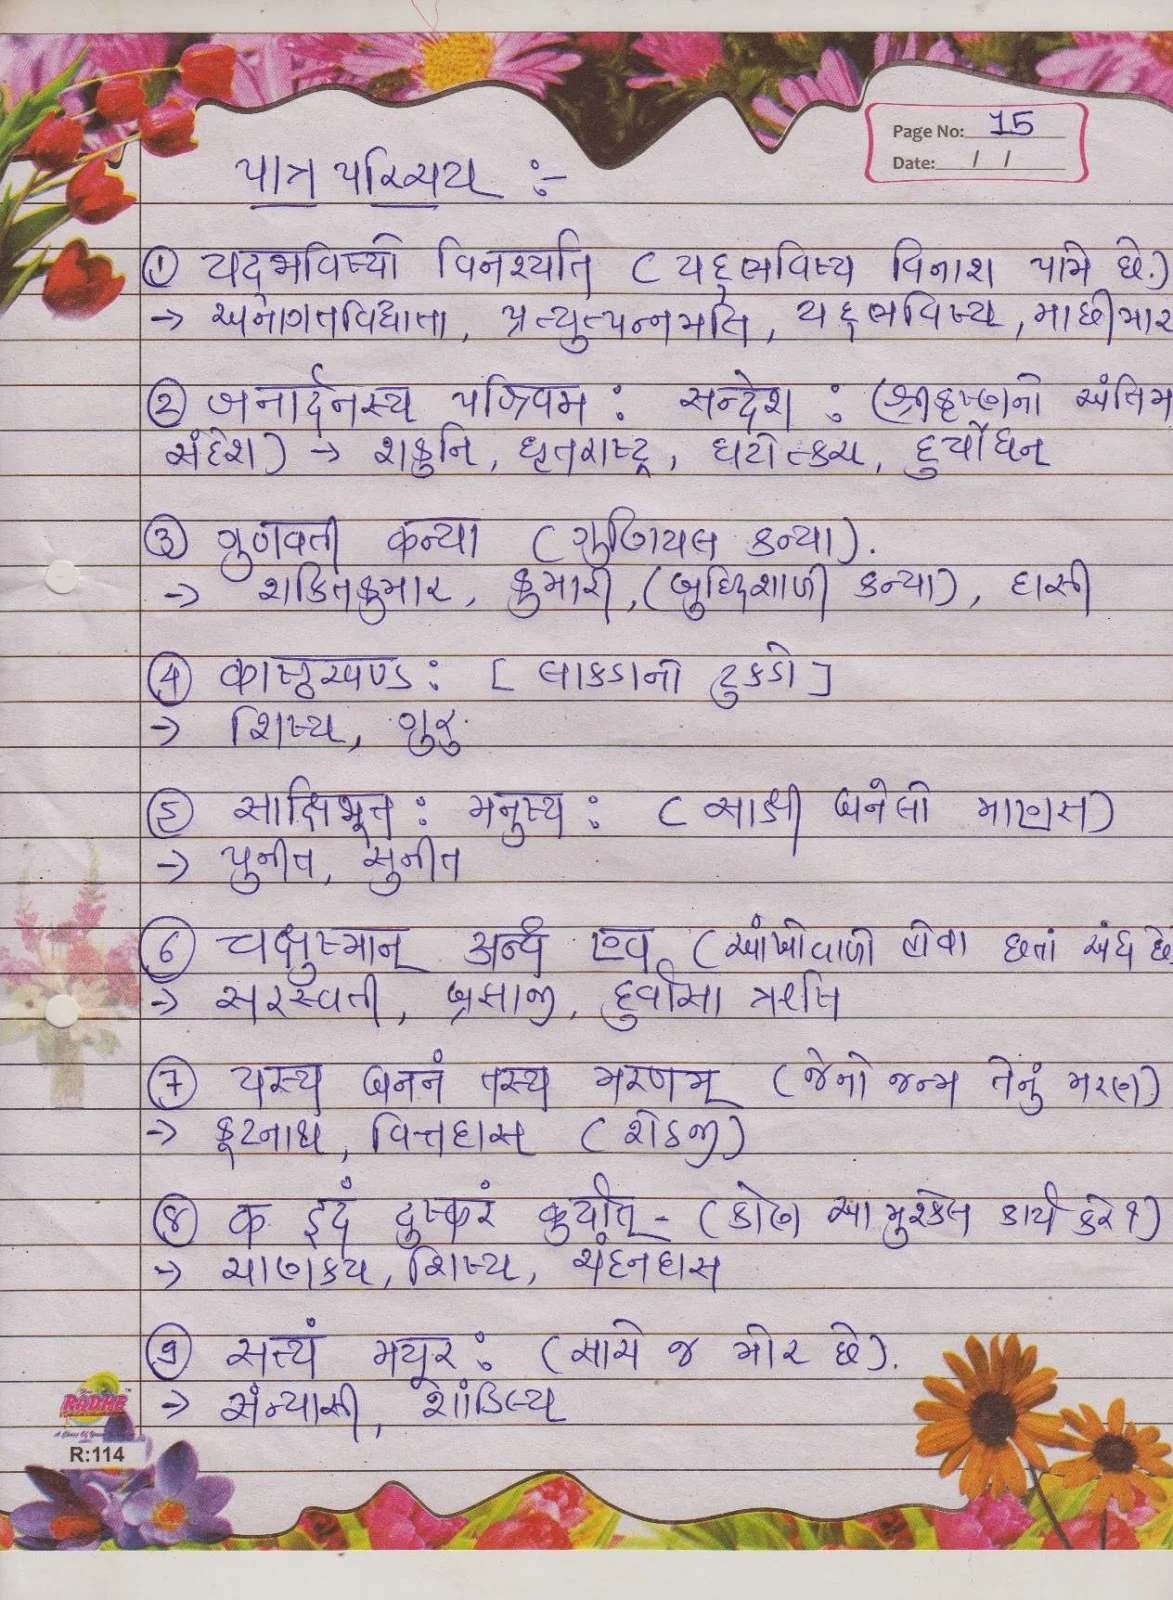 Page No: 15
Date: / /
પાત્ર પરિચય :-
① यदभविष्यो विनश्यति (યદ્ભવિષ્ય વિનાશ પામે છે.)
→ અનાગતવિધાતા, પ્રત્યુત્પન્નમતિ, યદ્ભવિષ્ય, માછીમાર
② जनार्दनस्य पश्चिमः सन्देशः (શ્રીકૃષ્ણનો અંતિમ
સંદેશ) → શકુનિ, ધૃતરાષ્ટ્ર, ઘટોત્કચ, દુર્યોધન
③ गुणवती कन्या (ગુણિયલ કન્યા).
→ શક્તિકુમાર, કુમારી, (બુધ્ધિશાળી કન્યા), દાસી
④ काष्ठखण्डः [લાકડાનો ટુકડો]
→ શિષ્ય, ગુરુ
⑤ साक्षिभूतः मनुष्यः (સાક્ષી બનેલો માણસ)
→ પુનીત, સુનીત
⑥ चक्षुष्मान् अन्ध एव (આંખોવાળો હોવા છતાં અંધ છે.
→ સરસ્વતી, બ્રહ્માજી, દુર્વાસા ઋષિ
⑦ यस्य जननं तस्य मरणम् (જેનો જન્મ તેનું મરણ)
→ કૂટનાથ, વિત્તદાસ (શેઠજી)
⑧ क इदं दुष्करं कुर्यात् - (કોણ આ મુશ્કેલ કાર્ય કરે ?)
→ ચાણક્ય, શિષ્ય, ચંદનદાસ
⑨ सत्यं मयूरः (સાચે જ મોર છે).
→ સંન્યાસી, શાંડિલ્ય
RADHE
R:114